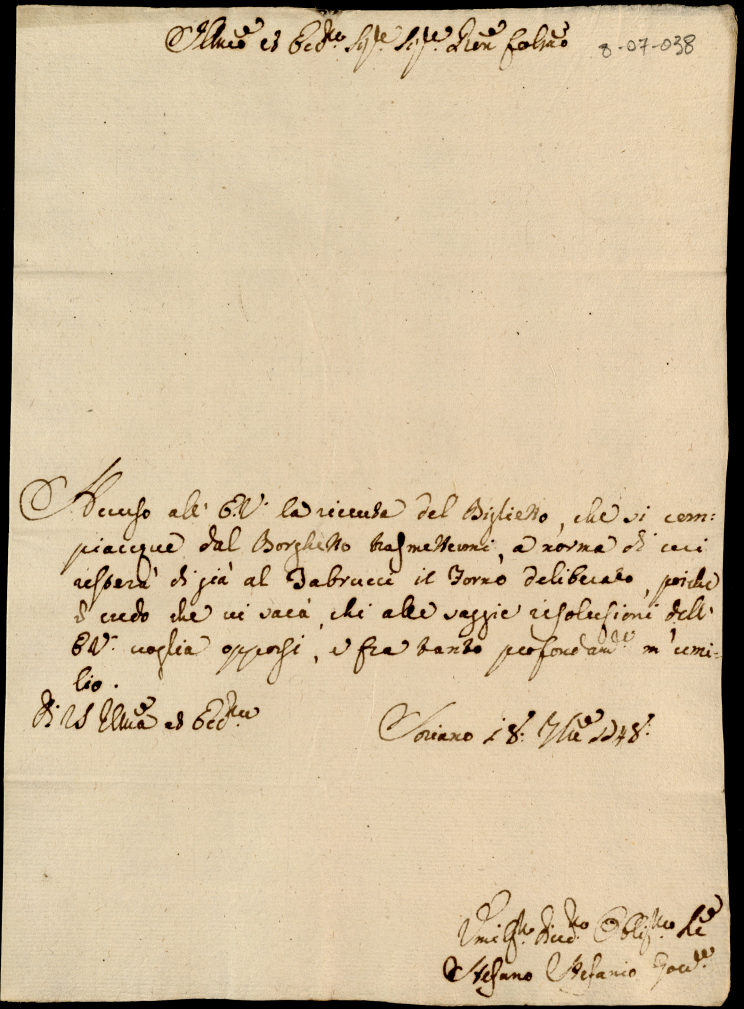 Illmo et Eccmo Sigre Sigre Pron Colmo 8-07-038
Accuso all' E.V. la riceuta del Biglietto, che si com:
piacque dal Borghetto trasmettermi, a norma di cui
resterà di già al Fabrucci il Forno deliberato, poiche
credo che vi sarà, chi alle saggie risoluzioni dell'
E.V. voglia opporsi, e fra tanto profondamte m'umi=
lio.
Di V.S. Illma et Eccma
Soriano 18: 7bre 1748:
Umilsmo Divmo Obligmo Sre
Stefano Stefanio Govre